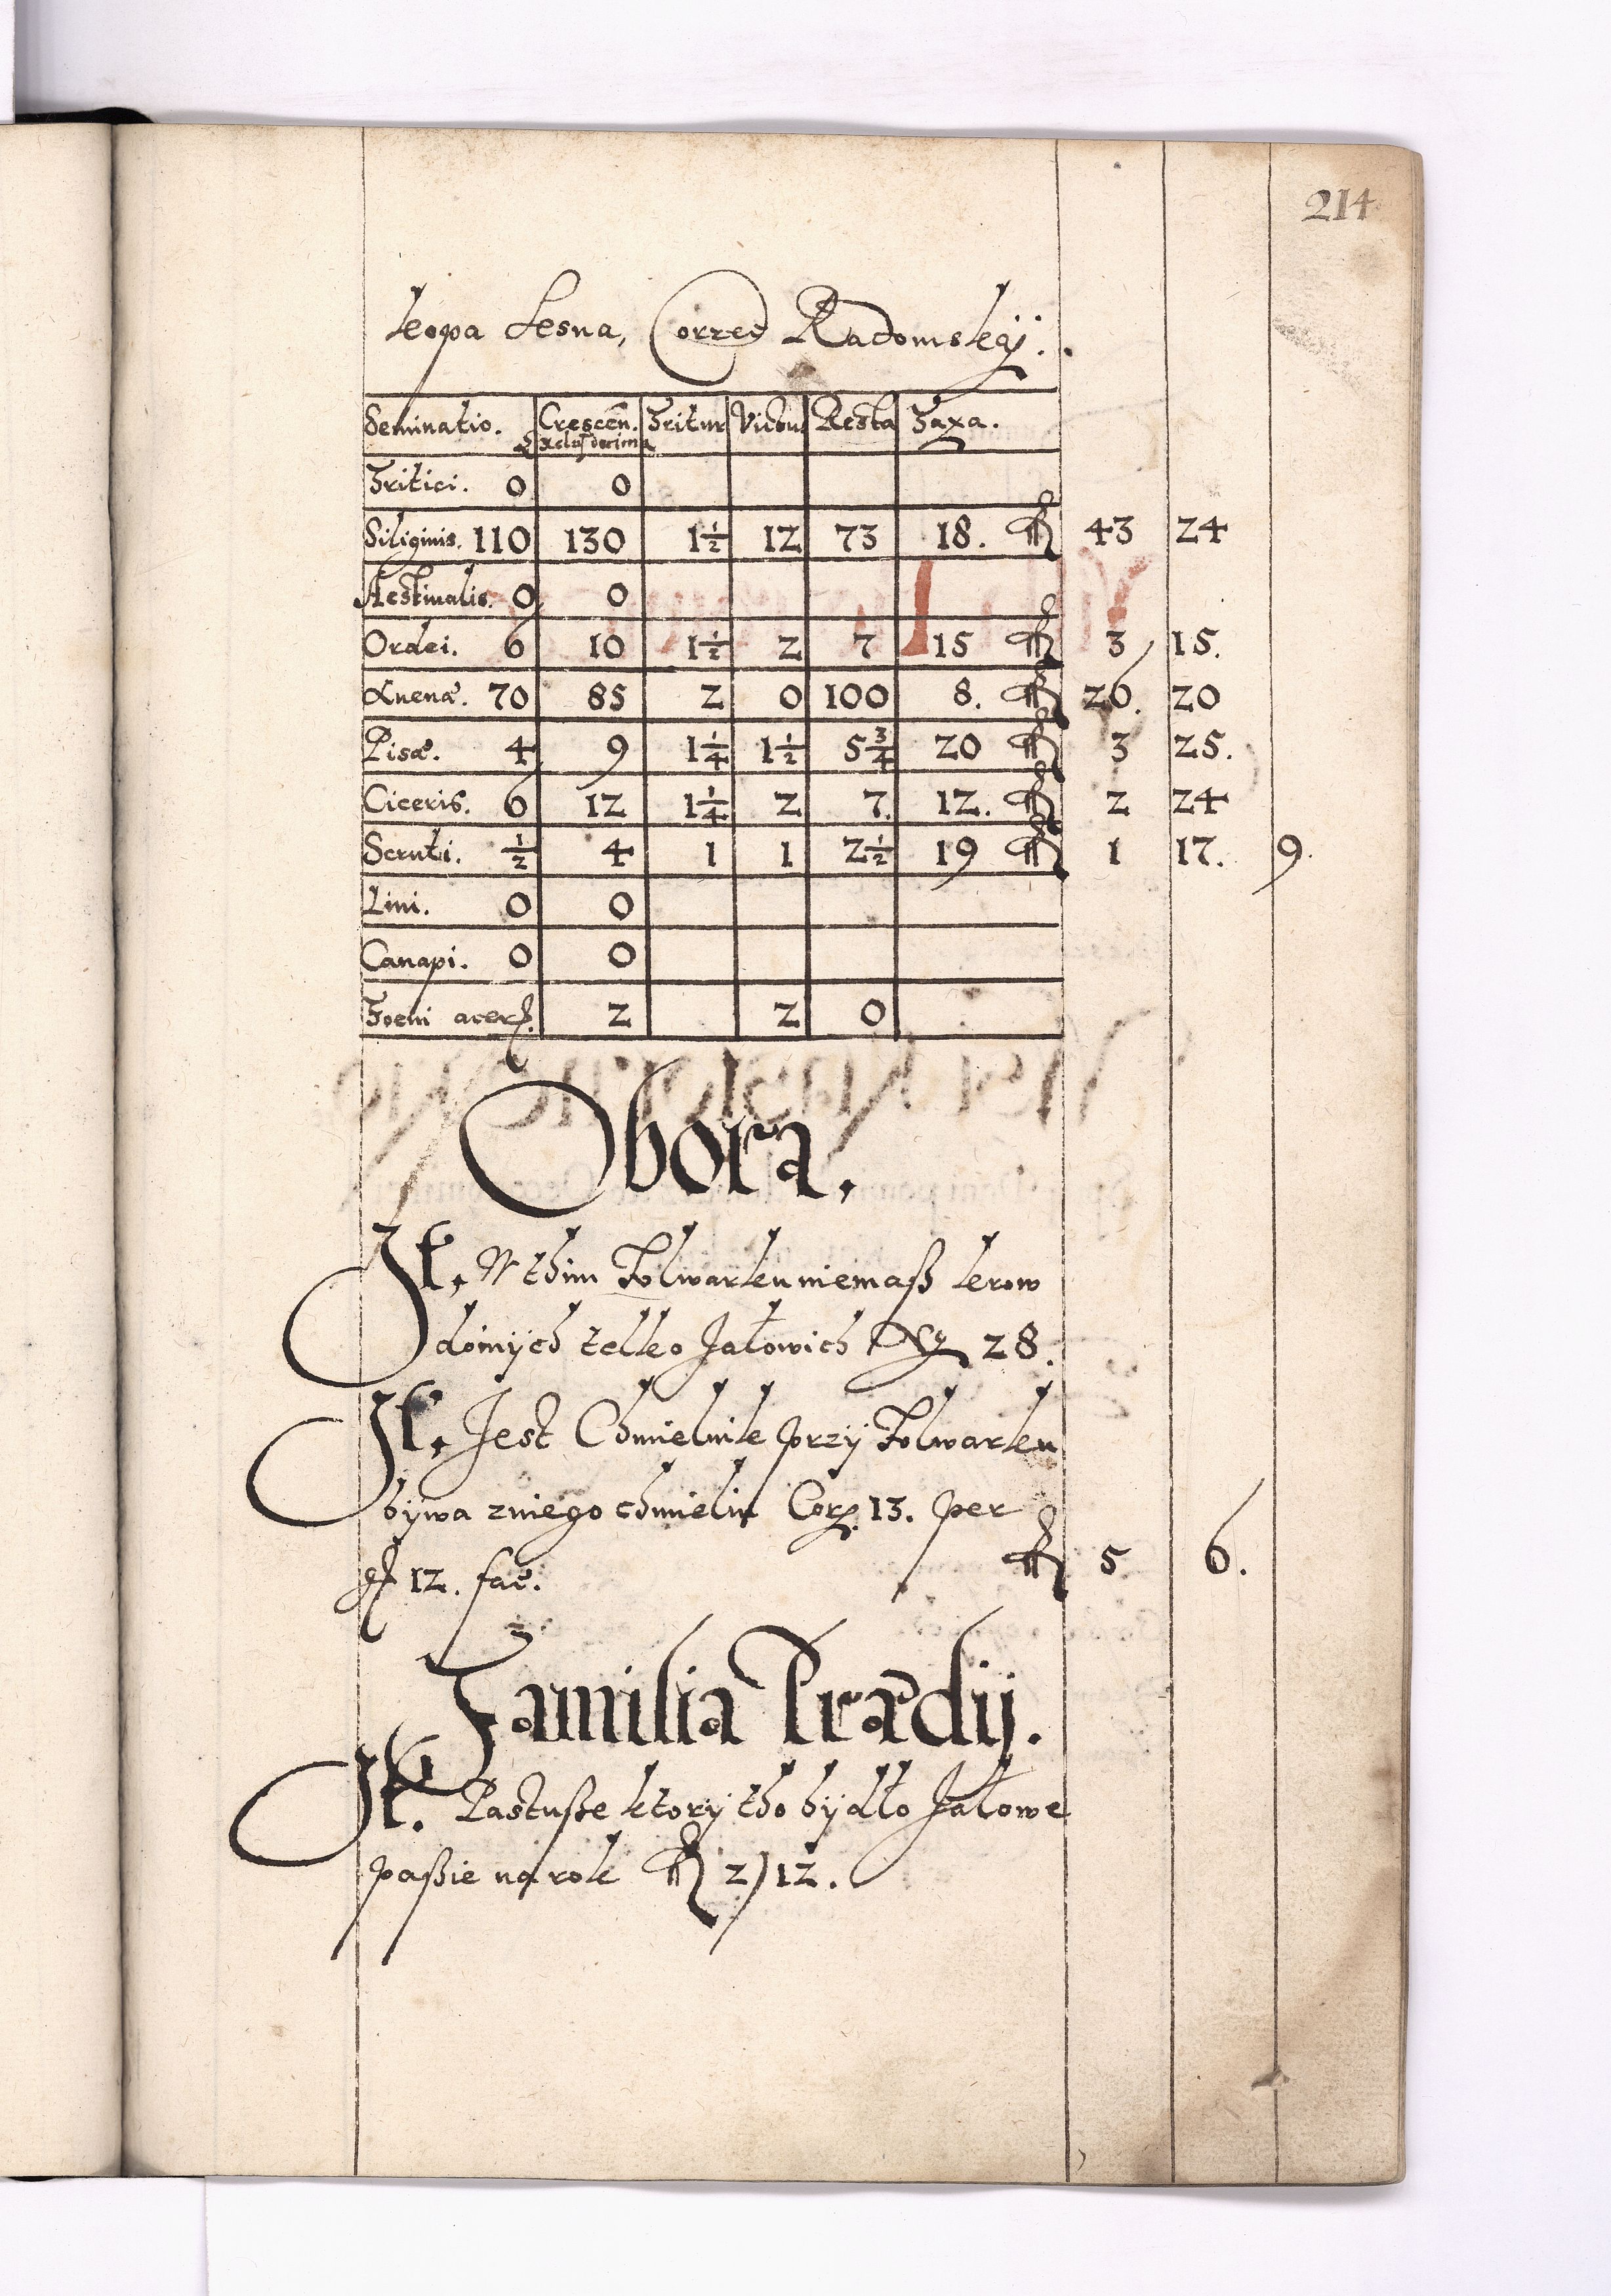 214
kopa Lesna, Corzec Radomskÿ.
Seminatio. Crescen. Exclus decima Tritur Victus Resta Taxa.
Tritici. 0 0
Siliginis. 110 130 1½ 12 73 18. fl 43 24
Aestivalis. 0 0
Ordei. 6 10 1½ 2 7 15 fl 3 15.
Auenæ. 70 85 2 0 100 8. fl 26. 20
Pisæ. 4 9 1¼ 1½ 5¾ 20 fl 3 25.
Ciceris. 6 12 1¼ 2 7. 12. fl 2 24
Scruti. ½ 4 1 1 2½ 19 fl 1 17. 9.
Lini. 0 0
Canapi. 0 0
Foeni acer. 2 2 0
Obora.
It. W thim Folwarku niemaß krow
doinÿch telko Jałowich 28.
It. Jest Chmielnik przÿ Folwarku
bÿwa zniego chmieliu Corz. 13. per
gr 12. fac. fl 5 6.
Familia Prædij.
It. Pastuße ktorÿ tho bÿdło Jałowe
paßie na rok fl 2/12.